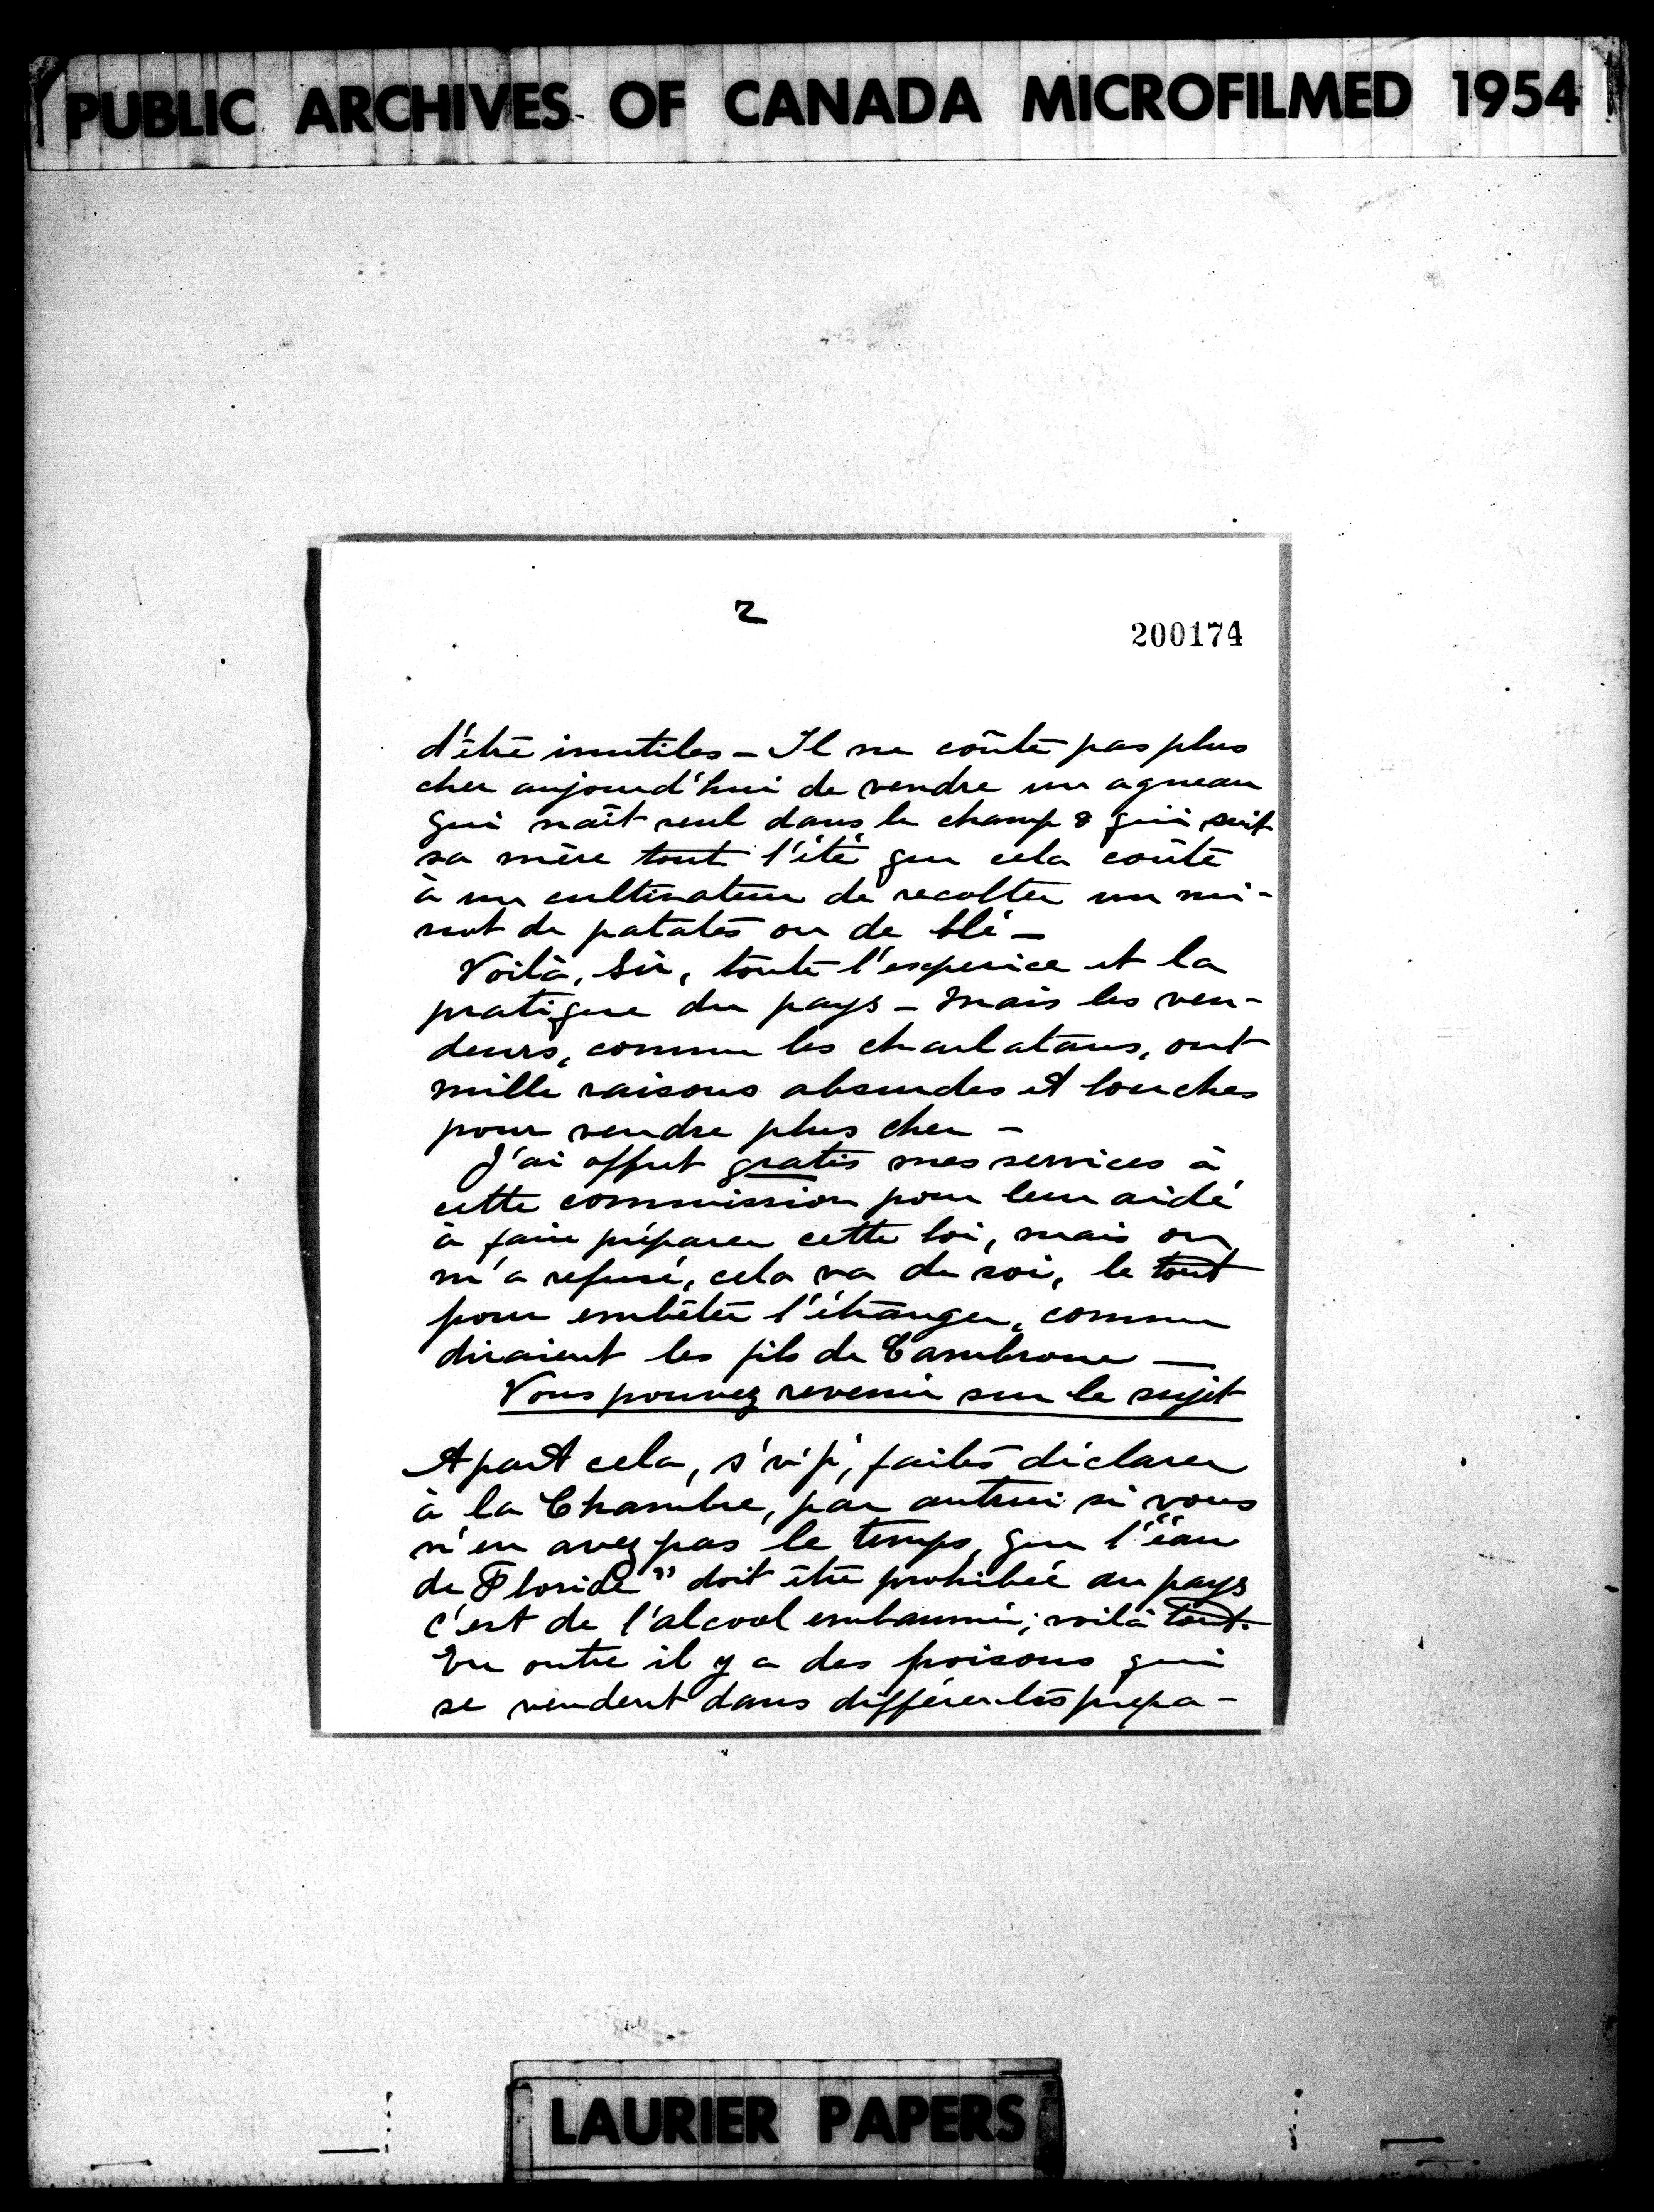 PUBLIC ARCHIVES OF CANADA MICROFILMED 1954
2
200174
d'être inutiles – Il ne coûte pas plus
cher aujourd'hui de vendre un agneau
qui naît seul dans le champ & qui suit
sa mère tout l'été que cela coûte
à un cultivateur de recolter un mi-
not de patates ou de blé –
Voilà, Sir, toute l'experice et la
pratique du pays – Mais les ven-
deurs, comme les charlatans, ont
mille raisons absurdes et louches
pour vendre plus cher –
J'ai offert gratis mes services à
cette commission pour leur aidé
à faire préparer cette loi, mais on
m'a refusé, cela va de soi, le tout
pour embêter l'étranger, comme
diraient les fils de Cambrone —
Vous pouvez revenir sur le sujet
Apart cela, s'v'p', faites déclarer
à la Chambre, par autrui si vous
n'en avez pas le temps, que l'"éau
de Floride" doit être prohibée au pays
c'est de l'alcool embaumé; voilà tout.
En outre il y a des poisons qui
se vendent dans différentes prepa-
LAURIER PAPERS